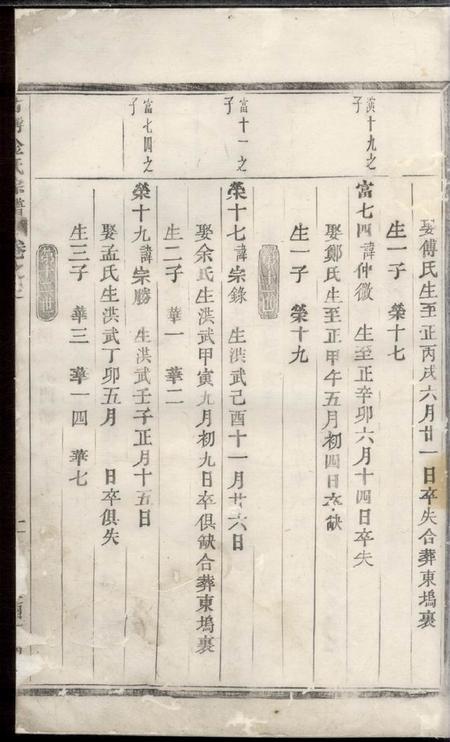 娶傅氏生至正丙戌六月廿一日卒失合葬東塢裏
生一子 榮十七
演十九之子
富七四諱仲微 生至正辛卯六月十四日卒失
娶鄭氏生至正甲午五月初四日卒缺
生一子 榮十九
富十一之子
榮十七諱宗錄 生洪武己酉十一月廿六日
娶余氏生洪武甲寅九月初九日卒俱缺合葬東塢裏
生二子 華一 華二
富七四之子
榮十九諱宗勝 生洪武壬子正月十五日
娶孟氏生洪武丁卯五月 日卒俱失
生三子 華三 華一四 華七
金氏宗譜 卷之